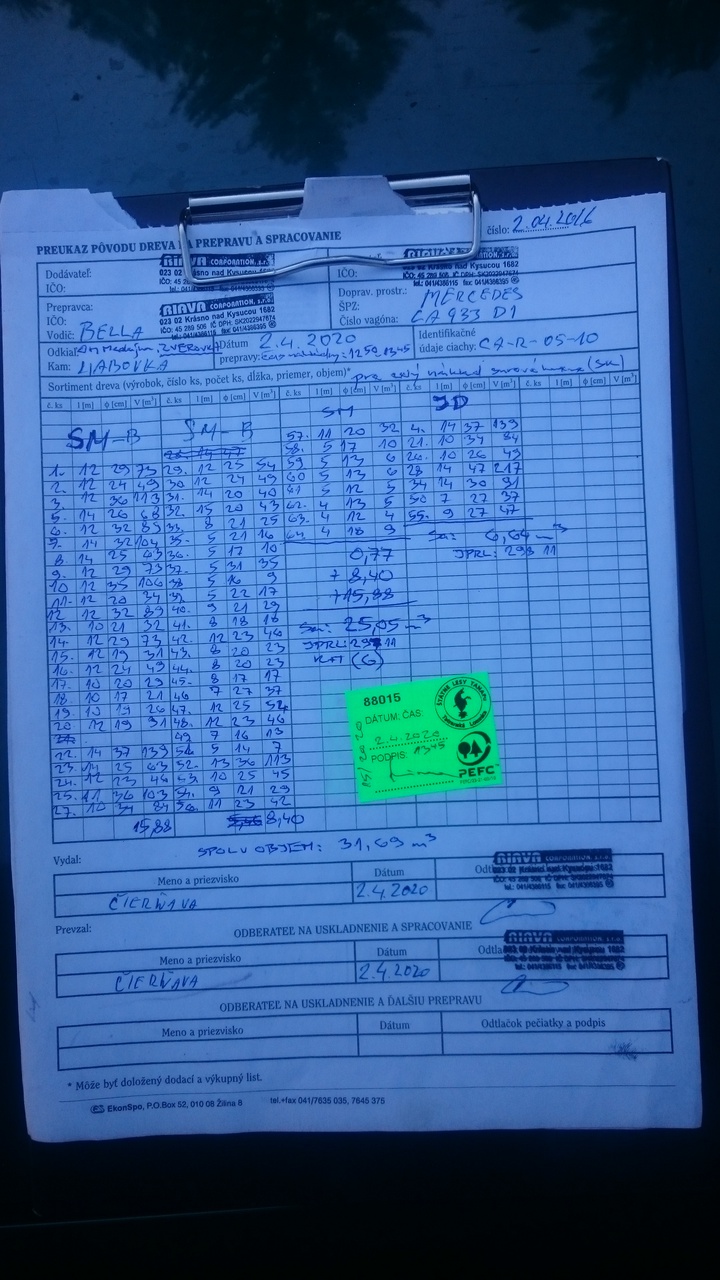 číslo: 2.04.2016
PREUKAZ PÔVODU DREVA NA PREPRAVU A SPRACOVANIE
Dodávateľ:
IČO:
RIAVA CORPORATION, s.r.o.
023 02 Krásno nad Kysucou 1682
IČO:
RIAVA CORPORATION, s.r.o.
023 02 Krásno nad Kysucou 1682
IČO: 45 289 506 IČ DPH: SK2022947674
tel.: 041/4386115 fax: 041/4386395
Prepravca:
IČO:
RIAVA CORPORATION, s.r.o.
023 02 Krásno nad Kysucou 1682
IČO: 45 289 506 IČ DPH: SK2022947674
tel.: 041/4386115 fax: 041/4386395
Vodič: BELLA
Doprav. prostr.: MERCEDES
ŠPZ:
Číslo vagóna: CA 933 DI
Odkiaľ:
Kam: LIABOVKA
Dátum 2.4.2020
prepravy:
Identifikačné
údaje ciachy: CA-R-05-10
Sortiment dreva (výrobok, číslo ks, počet ks, dĺžka, priemer, objem)*
č. ks l [m] ϕ [cm] V [m³] č. ks l [m] ϕ [cm] V [m³] č. ks l [m] ϕ [cm] V [m³] č. ks l [m] ϕ [cm] V [m³]
SM-B SM-B SM JD
57. 11 20 32 4. 14 37 139
58. 5 17 10 21. 10 34 84
1. 12 29 73 29. 12 25 54 59 5 13 6 26. 10 26 49
2. 12 24 49 30. 12 24 49 60 5 13 6 28 14 47 217
3. 12 36 113 31. 14 20 40 61 5 12 5 34 14 30 91
5. 14 26 68 32. 15 20 43 62. 4 13 5 50 7 27 37
6. 12 32 89 33. 8 21 25 63. 4 12 4 55. 9 27 47
7. 14 32 104 35. 5 21 16 64. 4 18 9
8 14 25 63 36. 5 17 10 0,77
Sa: 6,64 m³
JPRL: 298 11
9. 12 29 73 37. 5 31 35
10 12 35 106 38 5 16 9 + 8,40
11. 12 20 34 39. 5 22 17 + 15,88
12 12 32 89 40. 9 21 29
13. 10 21 32 41. 8 18 18 Sa: 25,05 m³
14. 12 29 73 42. 12 23 46
15. 12 19 31 43. 8 20 23
16. 12 24 49 44. 8 20 23 (6)
17. 10 20 29 45. 8 17 17
18. 10 17 21 46 7 27 37
19. 10 19 26 47. 12 25 54
20 12 19 31 48. 12 23 46
49 7 16 13
22. 14 37 139 51. 5 14 7
23. 14 25 63 52. 13 36 113
24. 12 23 46 53. 10 25 45
25. 11 36 103 54. 9 21 29
27. 10 34 84 56. 11 23 42
15,88 8,40
88015
DÁTUM: ČAS:
2.4.2020
PODPIS: 13 45
ŠTÁTNE LESY TANAPU
PEFC
SPOLU OBJEM: 31,69 m³
Vydal:
Meno a priezvisko Dátum
ČIERŇAVA 2.4.2020
RIAVA CORPORATION, s.r.o.
Prevzal:
ODBERATEĽ NA USKLADNENIE A SPRACOVANIE
Meno a priezvisko Dátum
ČIERŇAVA 2.4.2020
RIAVA CORPORATION, s.r.o.
ODBERATEĽ NA USKLADNENIE A ĎALŠIU PREPRAVU
Meno a priezvisko Dátum Odtlačok pečiatky a podpis
* Môže byť doložený dodací a výkupný list.
EkonSpo, P.O.Box 52, 010 08 Žilina 8 tel.+fax 041/7635 035, 7645 375